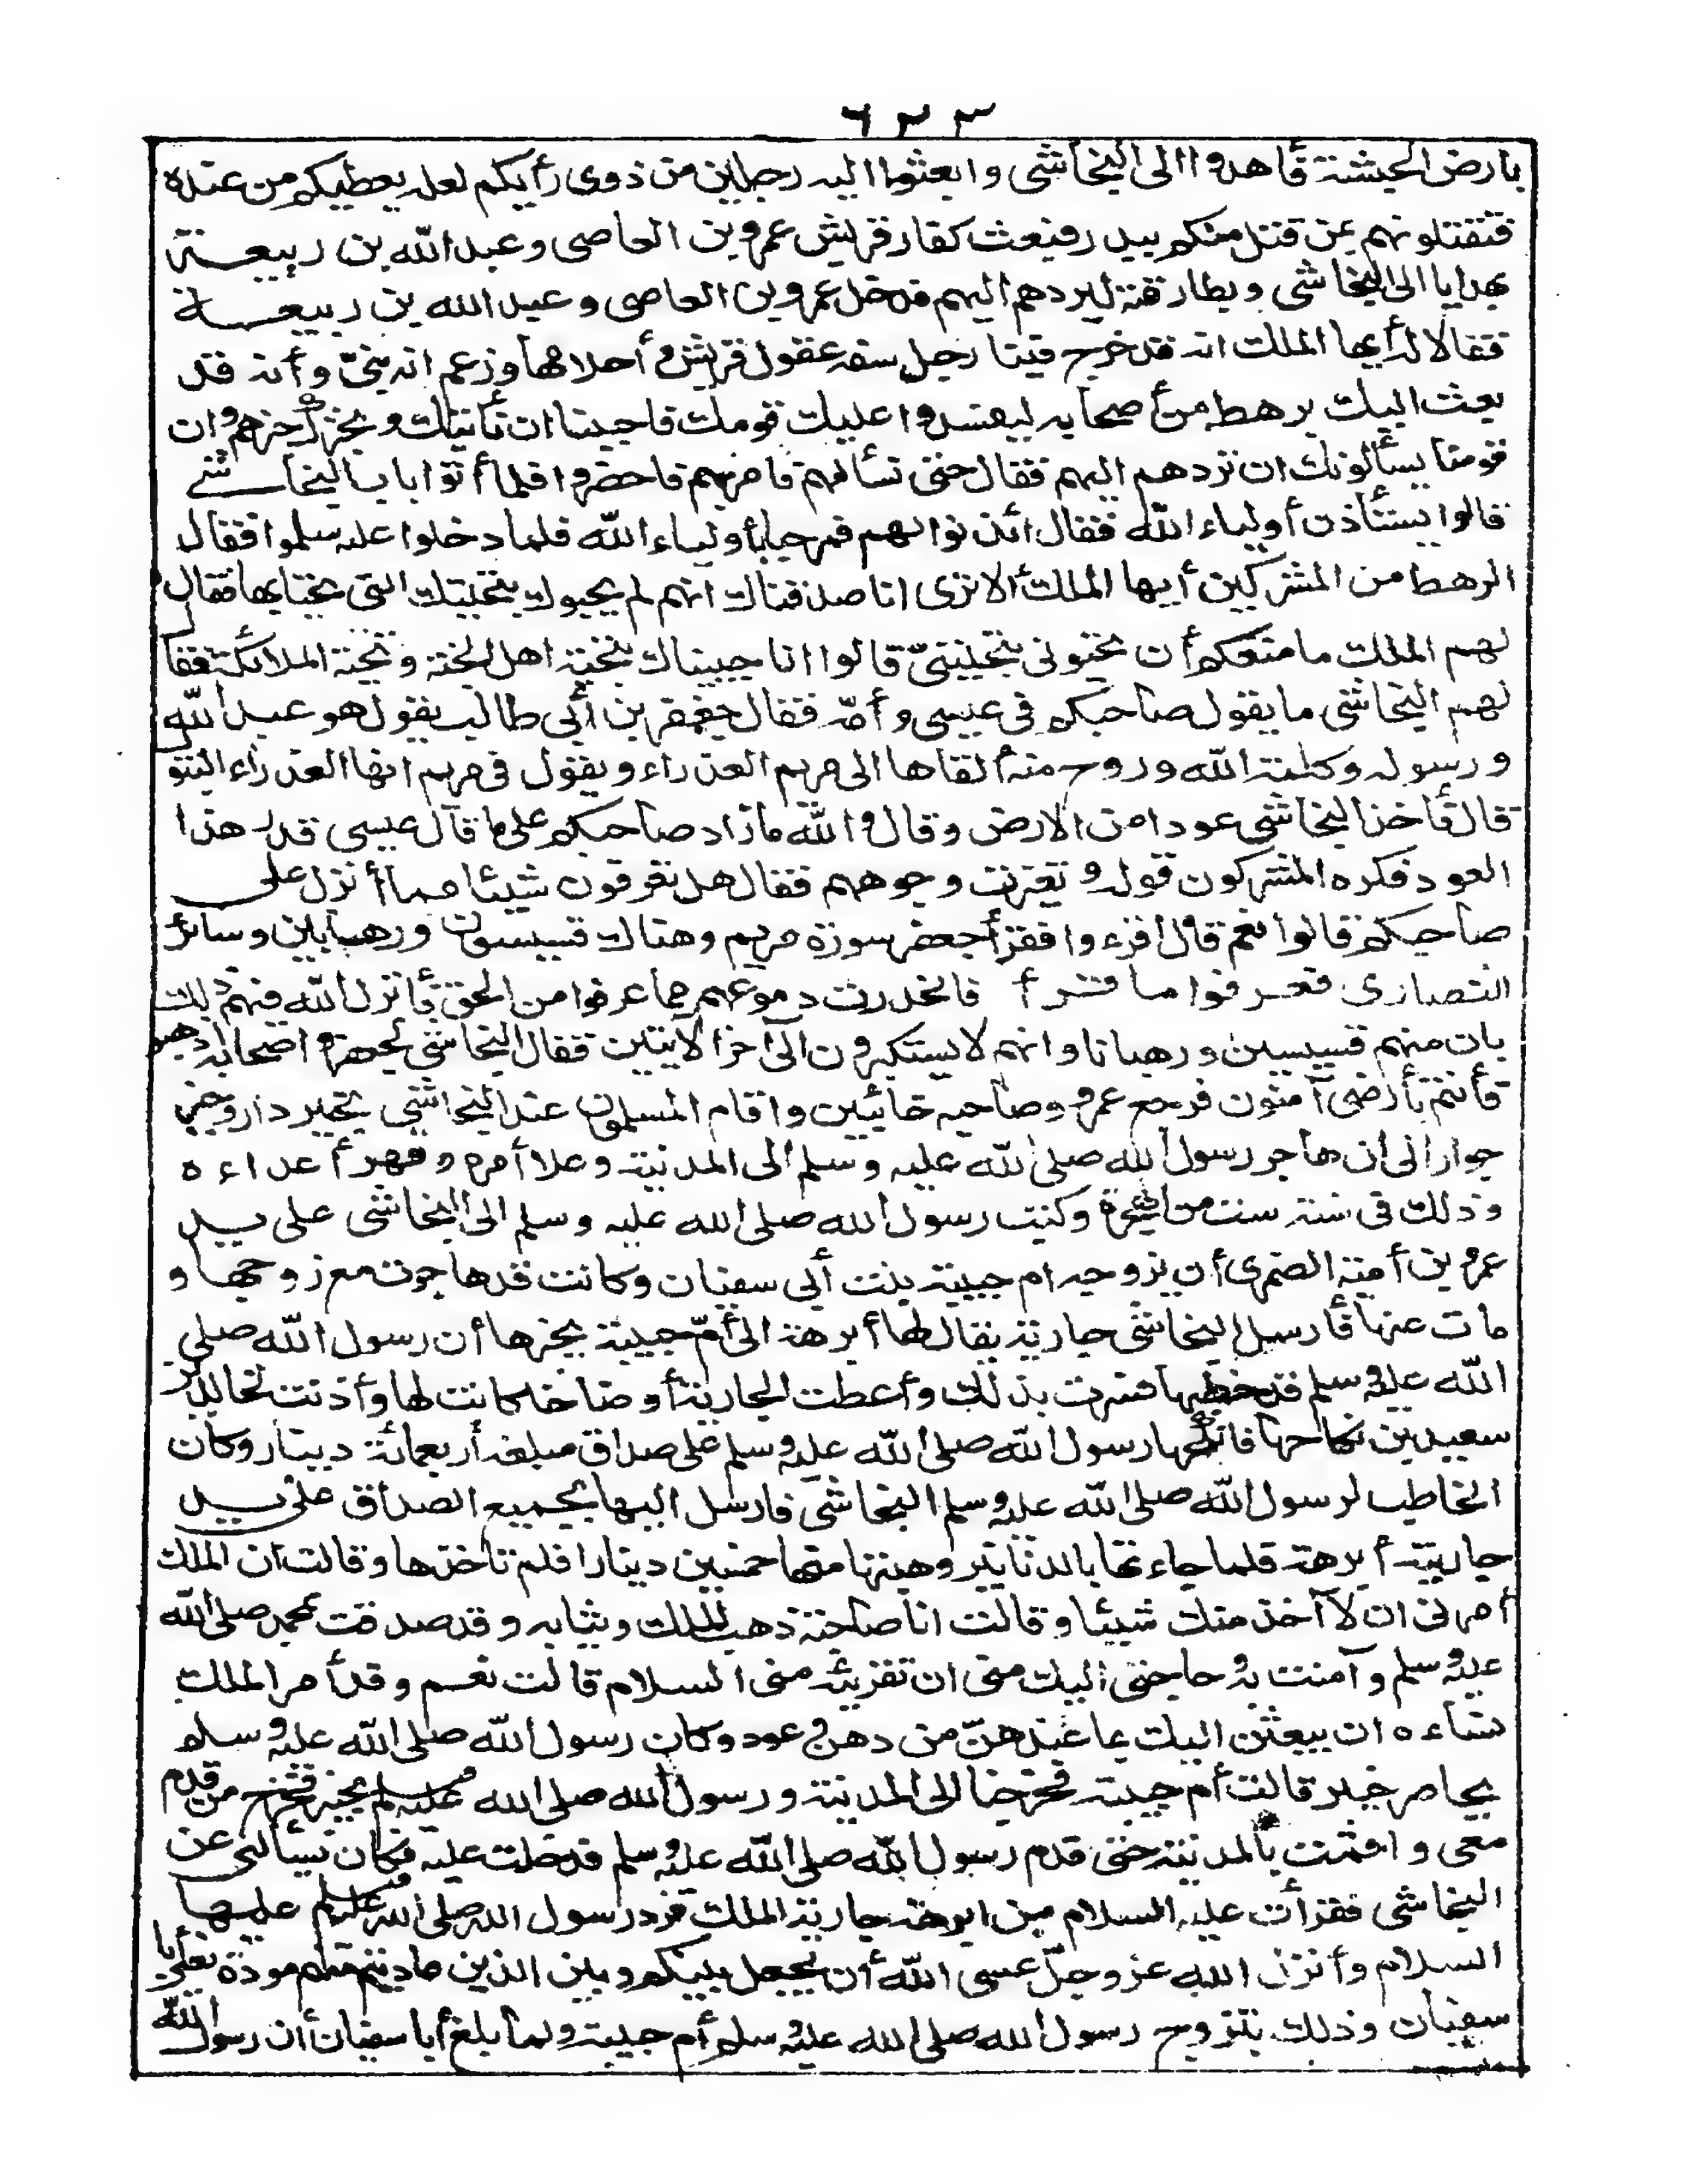 ٦٢٣
بأرض الحبشة فأهدوا الى النجاشى وابعثوا اليه رجلين من ذوى رأيكم لعله يعطيكم من عنده
فتقتلونهم عن قتل منكم ببدر فبعث كفار قريش عمرو بن العاصى وعبد الله بن ربيعة
بهدايا الى النجاشى وبطارقته ليردهم اليهم فدخل عمرو بن العاصى وعبد الله بن ربيعة
فقالا له أيها الملك انه قد خرج فينا رجل سفه عقول قريش وأحلامها وزعم انه نبىّ وأنه قد
بعث اليك برهط من أصحابه ليفسدوا عليك قومك فأحببنا ان نأتيك ونخبرك خبرهم وان
قومنا يسألونك ان تردهم اليهم فقال حتى نسألهم فأمر بهم فاحضروا فلما أتوا باب النجاشى
قالوا يستأذن أولياء الله فقال ائذنوا لهم فمرحبا بأولياء الله فلما دخلوا عليه سلموا فقال
الرهط من المشركين أيها الملك ألا ترى انا صدقناك انهم لم يحيوك بتحيتك التى تحيا بها فقال
لهم الملك ما منعكم أن تحيونى بتحيتىّ قالوا انا حييناك بتحية اهل الجنة وتحية الملائكة فقا
لهم النجاشى ما يقول صاحبكم فى عيسى وأمّه فقال جعفر بن أبى طالب يقول هو عبد الله
ورسوله وكلمة الله وروح منه ألقاها الى مريم العذراء ويقول فى مريم انها العذراء البتو
قال فأخذ النجاشى عودا من الارض وقال والله ما زاد صاحبكم على ما قال عيسى قدر هذا
العود فكره المشركون قوله وتغيرت وجوههم فقال هل تعرفون شيئا مما أنزل على
صاحبكم قالوا نعم قال اقرءوا فقرأ جعفر سورة مريم وهناك قسيسون ورهبابين وسائر
النصارى فعرفوا ما قرأ فانحدرت دموعهم مما عرفوا من الحق فأنزل الله فيهم ذلك
بان منهم قسيسين ورهبانا وانهم لا يستكبرون الى آخر الآيتين فقال النجاشى لجعفر واصحابه اذهبو
فأنتم بأرضى آمنون فرجع عمرو وصاحبه خائبين واقام المسلمون عند النجاشى بخير دار وخير
جوار الى ان هاجر رسول الله صلى الله عليه وسلم الى المدينة وعلا أمره وقهر أعداءه
وذلك فى سنة ست من الهجرة وكتب رسول الله صلى الله عليه وسلم الى النجاشى على يد
عمرو بن أمية الضمرى أن يزوجه ام حبيبة بنت أبى سفيان وكانت قد هاجرت مع زوجها و
مات عنها فأرسل النجاشى جارية يقال لها أبرهة الى أمّ حبيبة يخبرها أن رسول الله صلى
الله عليه وسلم قد خطبها فسرت بذلك وأعطت الجارية أوضاخا كانت لها وأذنت لخالد بن
سعيد بن نكاحها فانكحها رسول الله صلى الله عليه وسلم على صداق مبلغه أربعمائة دينار وكان
الخاطب لرسول الله صلى الله عليه وسلم النجاشى فارسل اليها بجميع الصداق على يد
جاريته أبرهة فلما جاءتها بالدنانير وهبتها منها خمسين دينارا فلم تأخذها وقالت ان الملك
أمرنى ان لا آخذ منك شيئا وقالت انا صاحبة دهن الملك وثيابه وقد صدقت محمد صلى الله
عليه وسلم وآمنت به وحاجتى اليك منى ان تقرئيه منى السلام قالت نعم وقد أمر الملك
نساءه ان يبعثن اليك بما عندهنّ من دهن وعود وكان رسول الله صلى الله عليه وسلم
بحاصر خيبر قالت أم حبيبة فخرجنا الى المدينة ورسول الله صلى الله عليه وسلم بخيبر فخرج من قدم
معى واقمت بالمدينة حتى قدم رسول الله صلى الله عليه وسلم فدخلت عليه فكان يسألنى عن
النجاشى فقرأت عليه السلام من ابرهة جارية الملك فرد رسول الله صلى الله عليه وسلم عليها
السلام وأنزل الله عز وجلّ عسى الله أن يجعل بينكم وبين الذين عاديتم منهم مودة يعنى أبا
سفيان وذلك بتزويج رسول الله صلى الله عليه وسلم أم حبيبة ولما بلغ أبا سفيان أن رسول الله